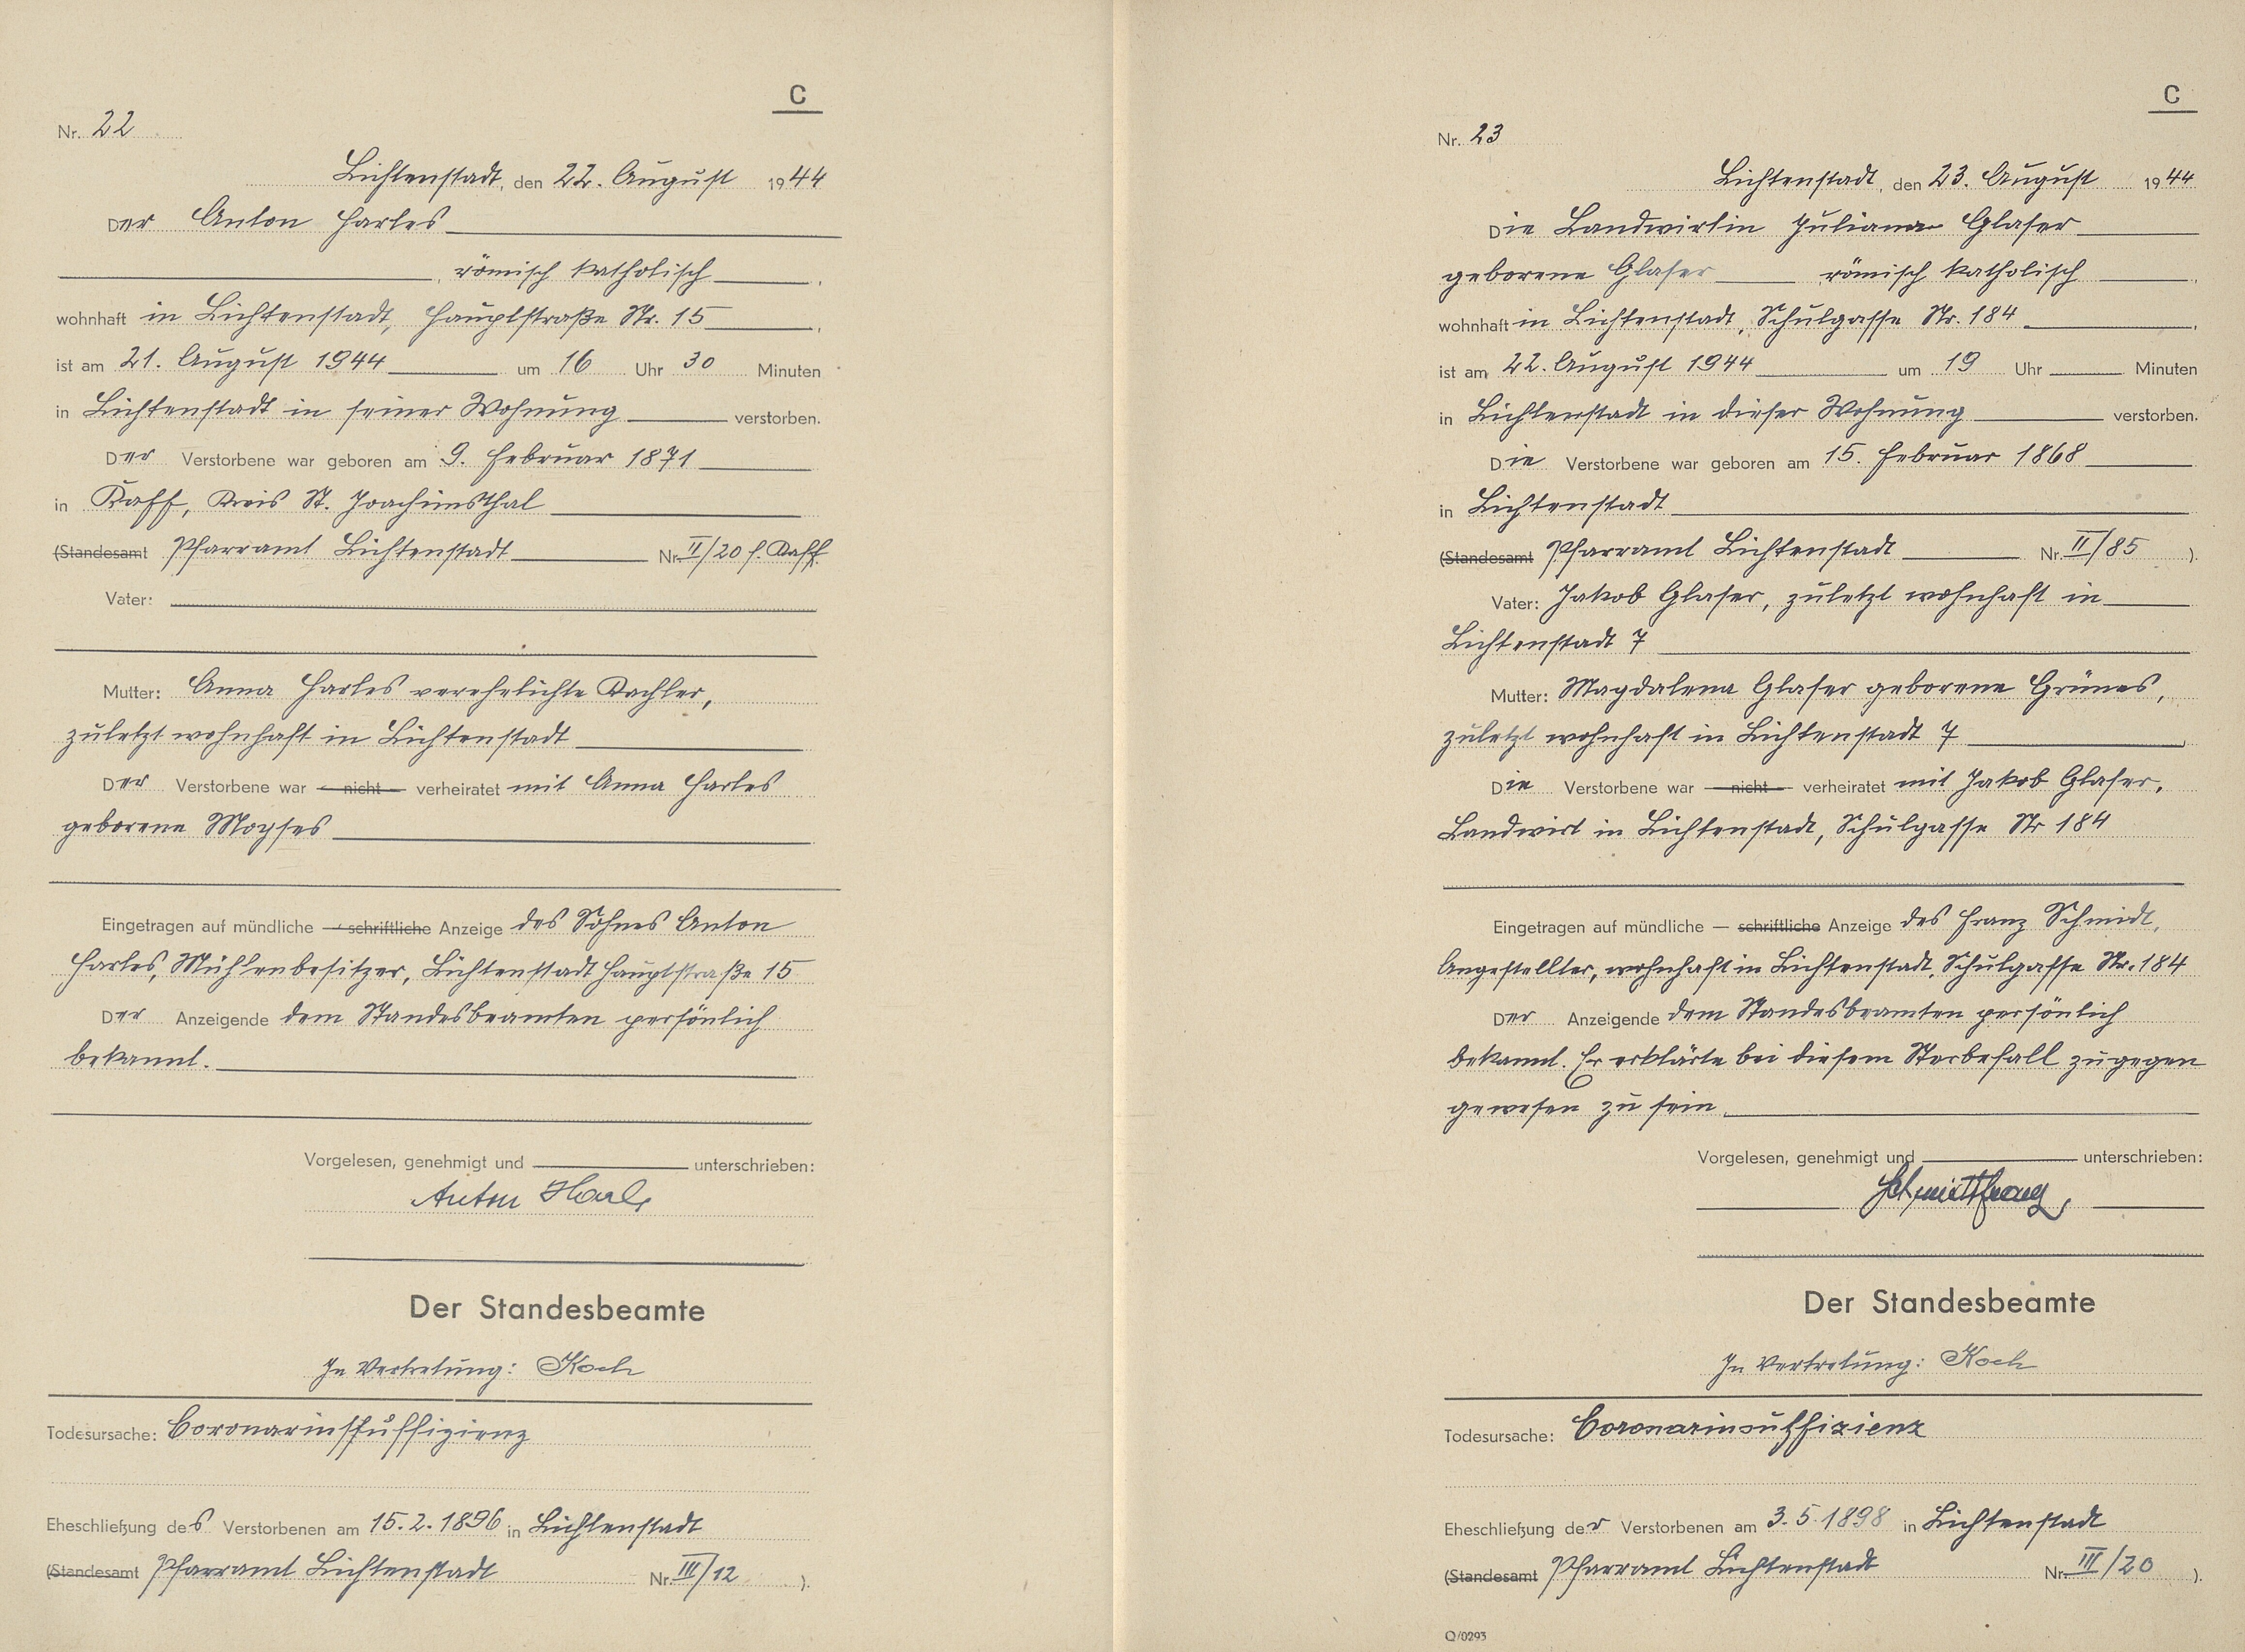 C
Nr. 22
Lichtenstadt, den 22. August 1944
Der Anton Harles
römisch katholisch,
wohnhaft in Lichtenstadt, Hauptstraße Nr. 15,
ist am 21. August 1944 um 16 Uhr 30 Minuten
in Lichtenstadt in seiner Wohnung verstorben.
Der Verstorbene war geboren am 9. Februar 1871
in Kaff, Kreis St. Joachimsthal
(Standesamt Pfarramt Lichtenstadt Nr. II/20 f. Kaff.
Vater:
Mutter: Anna Harles verehelichte Kachler,
zuletzt wohnhaft in Lichtenstadt
Der Verstorbene war nicht verheiratet mit Anna Harles
geborene Moyses
Eingetragen auf mündliche – schriftliche Anzeige des Sohnes Anton
Harles, Mühlenbesitzer, Lichtenstadt Hauptstraße 15
Der Anzeigende dem Standesbeamten persönlich
bekannt.
Vorgelesen, genehmigt und unterschrieben:
Anton Harles
Der Standesbeamte
In Vertretung: Koch
Todesursache: Coronarinsuffizienz
Eheschließung des Verstorbenen am 15.2.1896 in Lichtenstadt
(Standesamt Pfarramt Lichtenstadt Nr. III/12 ).
C
Nr. 23
Lichtenstadt, den 23. August 1944
Die Landwirtin Juliana Glaser
geborene Glaser, römisch katholisch,
wohnhaft in Lichtenstadt, Schulgasse Nr. 184,
ist am 22. August 1944 um 19 Uhr Minuten
in Lichtenstadt in dieser Wohnung verstorben.
Die Verstorbene war geboren am 15. Februar 1868
in Lichtenstadt
(Standesamt Pfarramt Lichtenstadt Nr. II/85 ).
Vater: Jakob Glaser, zuletzt wohnhaft in
Lichtenstadt 7
Mutter: Magdalena Glaser geborene Grünes,
zuletzt wohnhaft in Lichtenstadt 7
Die Verstorbene war nicht verheiratet mit Jakob Glaser,
Landwirt in Lichtenstadt, Schulgasse Nr 184
Eingetragen auf mündliche – schriftliche Anzeige des Franz Schmidt,
Angestellter, wohnhaft in Lichtenstadt, Schulgasse Nr. 184
Der Anzeigende dem Standesbeamten persönlich
bekannt. Er erklärte bei diesem Sterbefall zugegen
gewesen zu sein.
Vorgelesen, genehmigt und unterschrieben:
Schmidt Franz
Der Standesbeamte
In Vertretung: Koch
Todesursache: Coronarinsuffizienz
Eheschließung der Verstorbenen am 3.5.1898 in Lichtenstadt
(Standesamt Pfarramt Lichtenstadt Nr. III/20 ).
Q/0293